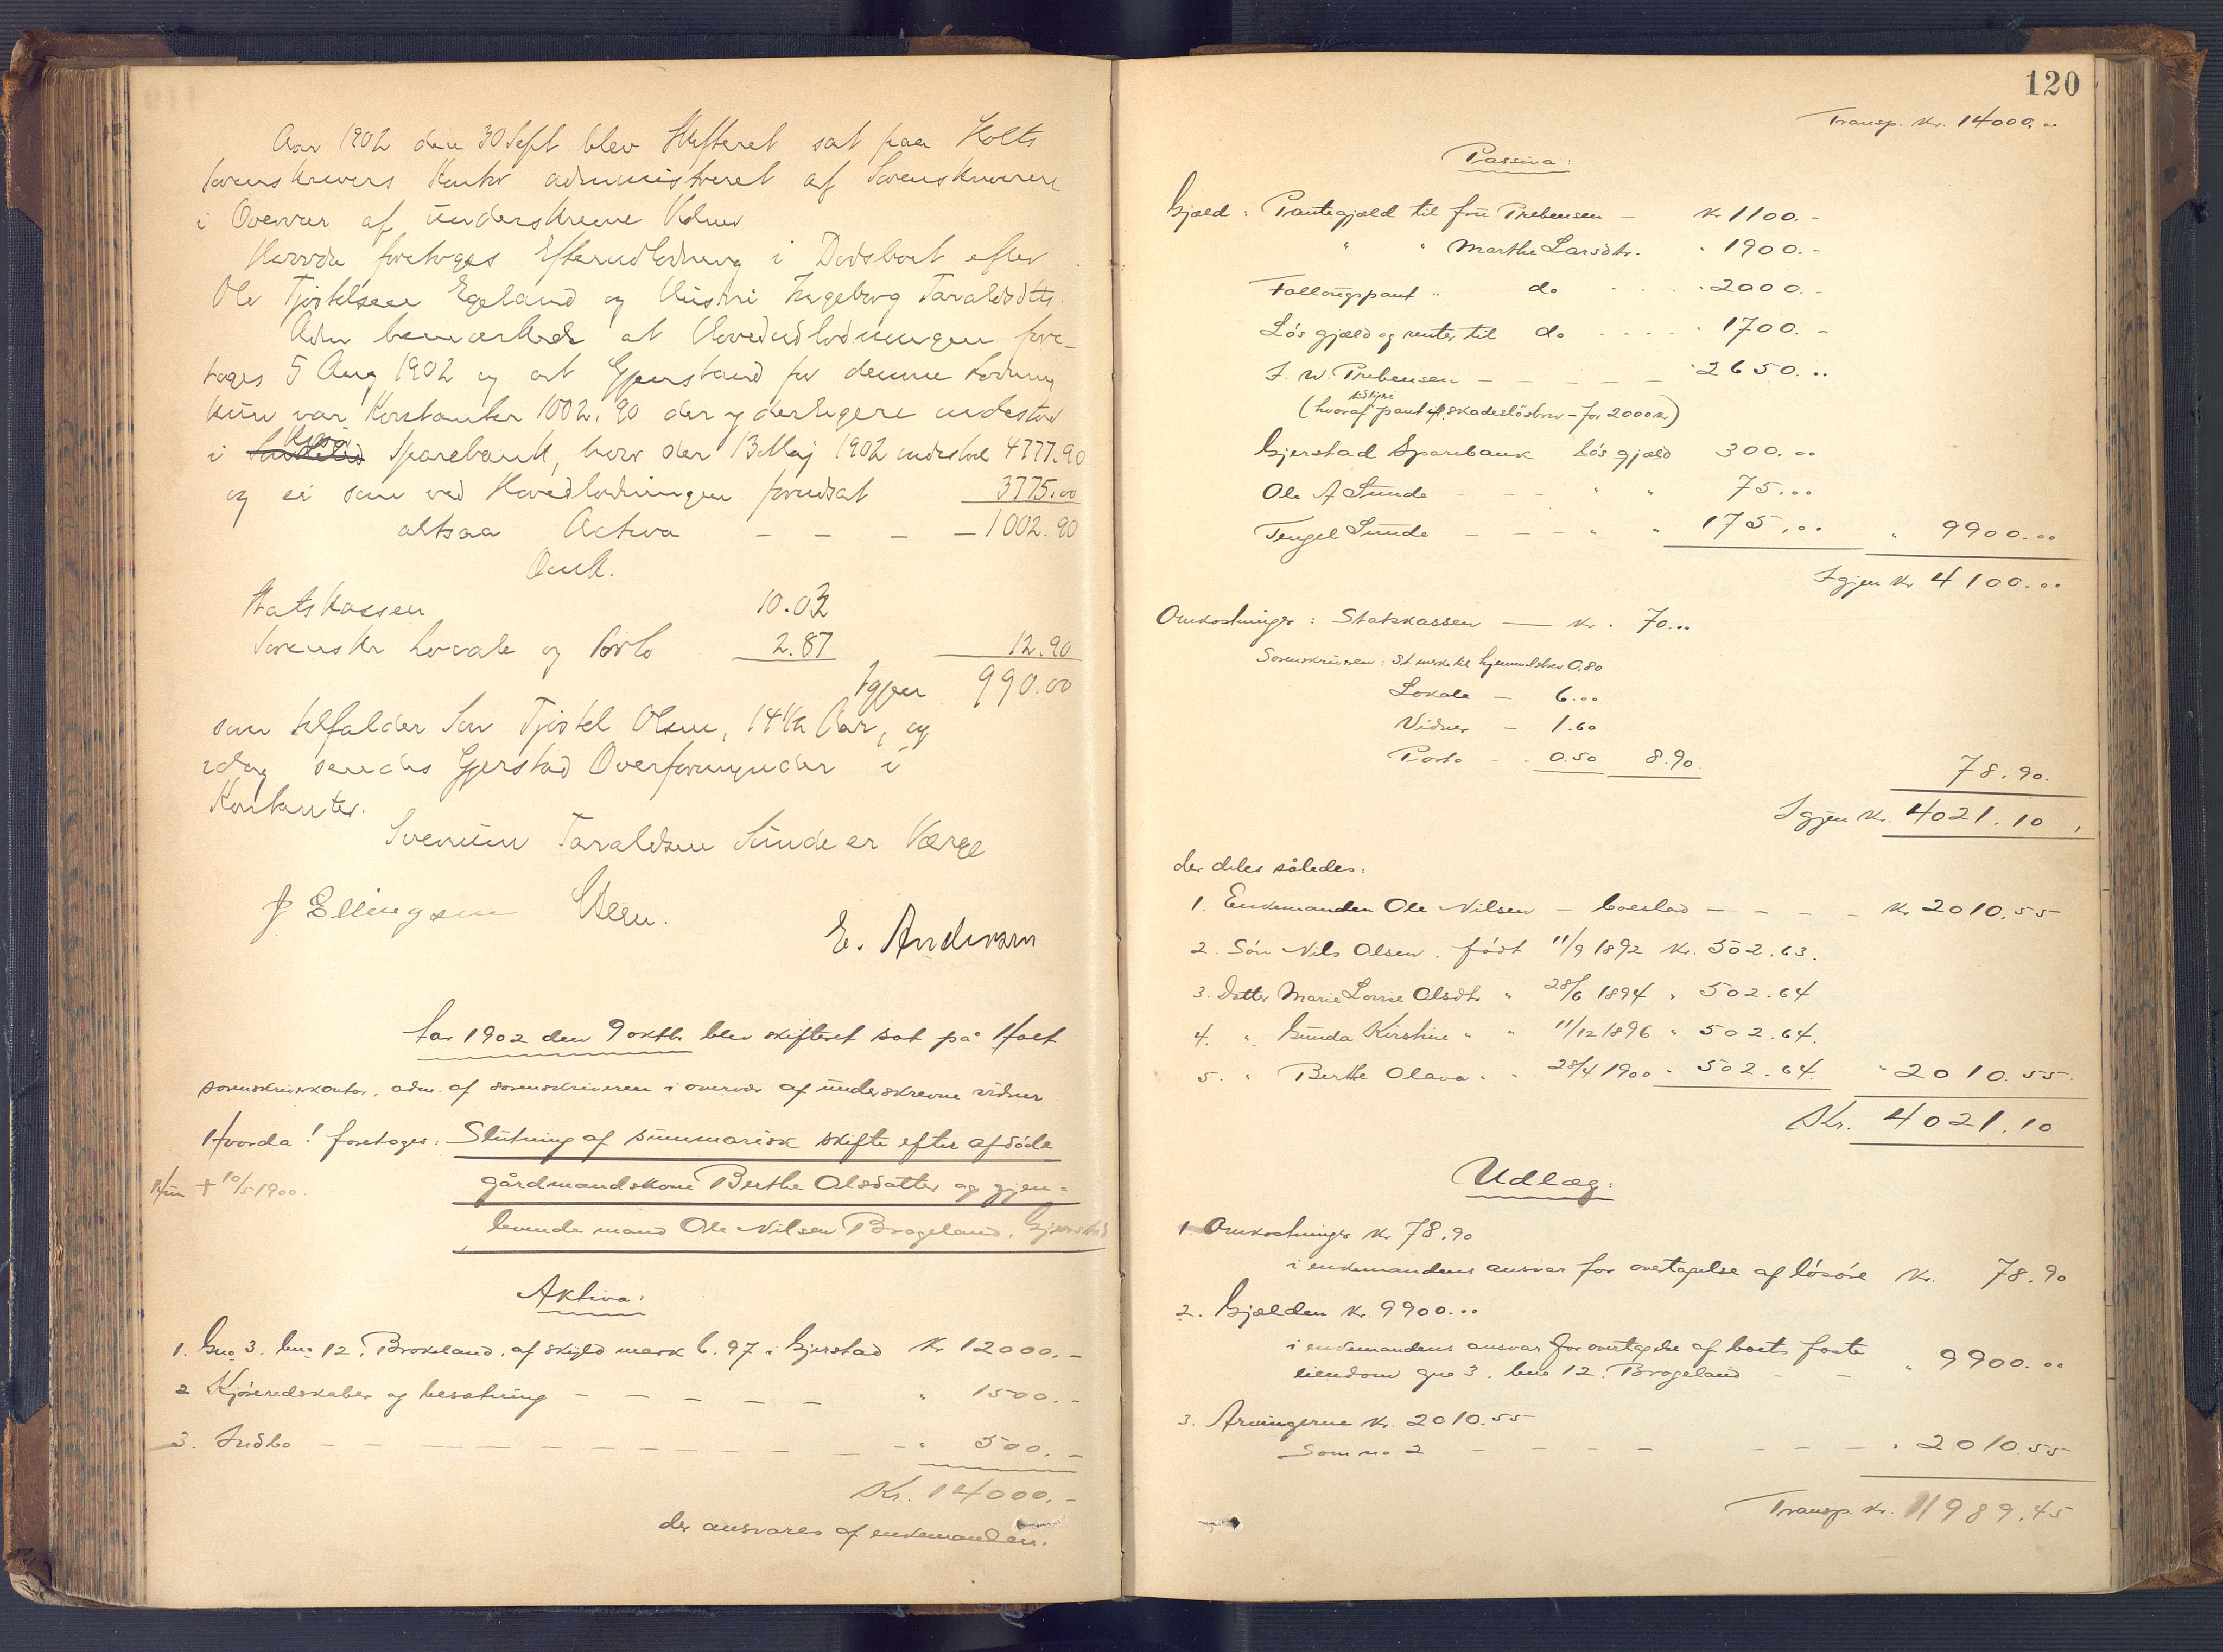 Aar 1902 den 30 Sept. blev Skifteret sat paa Holts
Sorenskrivers Kontor administreret af Sorenskriveren
i Overvær af underskrevne Vidner
Hvorda foretoges Efterudlodning i Dødsboet efter
Ole Tjøstelsen Egeland og Hustru Ingeborg Taraldsdtr.
bemærkedes at Hovedudlodningen fore-
toges 5 Aug 1902 og at Gjenstand for denne Lodning
kun var Kontanter 1002.90 der yderligere indestod
i Sparebank, hvor der 13 Maj 1902 indestod 4777.90
og ei som ved Hovedlodningen forudsat 3775.00
altsaa Activa - - - - 1002.90
Omk.
Statskassen 10.03
Sorenskr Locale og Porto 2.87 12.90
Igjen 990.00
som tilfalder Søn Tjøstel Olsen, 14½ Aar, og
idag sendes Gjerstad Overformynderi i
Kontanter.
Svenum Taraldsen Sunde er Værge
J Ellingsen Steen. E. Andersen
Aar 1902 den 9 oktbr. blev skifteret sat på Holt
sorenskriverkontor, adm. af sorenskriveren i overvær af underskrevne vidner
Hvorda! foretoges: Slutning af summarisk skifte efter afdöde
gårdmandskone Berthe Olsdatter og gjen-
Hun + 10/5 1900.
levende mand Ole Nilsen Brogeland, Gjerstad
Aktiva:
1. Gno 3. bno 12. Brokeland, af skyld mark 6.97 i Gjerstad Kr 12000.-
2 Kjöreredskaber og besætning - - - - - " 1500.-
3. Indbo - - - - - - - - - " 500.-
Kr. 14000.-
der ansvares af enkemanden.
120
Transp. Kr. 14000.00
Passiva:
Gjæld: Pantegjæld til fru Prebensen - Kr 1100.-
" " Marthe Larsdtr. " 1900.-
Follougspant " do " 2000.-
Lös gjæld og renter til do " 1700.-
J. W. Prebensen - - - - - " 2650...
(hvoraf pant if. skadeslösbrev - for 2000 kr)
Gjerstad Sparebank lös gjæld 300...
Ole A Sunde - - - " " 75...
Tengel Sunde - - - " " 175,.. " 9900...
Igjen Kr 4100...
Omkostninger: Statskassen — Kr. 70...
Sorenskriveren: St. mske til hjemmelsbrev 0.80
Lokale - 6...
Vidner - 1.60
Porto - - 0.50 8.90. 78.90.
Igjen Kr. 4021.10
der deles således:
1. Enkemanden Ole Nilsen - boeslod - - - - Kr 2010.55
2. Sön Nils Olsen. födt 11/9 1892 Kr. 502.63.
3. Datter Marie Lovise Olsdtr " 28/6 1894 " 502.64
4. " Gunda Kirstine " " 11/12 1896 " 502.64.
5. " Berthe Olava " " 28/4 1900 " 502.64. " 2010.55.
Kr. 4021.10
Udlæg:
1 Omkostninger Kr 78.90
i enkemandens ansvar for overtagelse af lösöre Kr. 78.90
2. Gjælden Kr. 9900...
i enkemandens ansvar for overtagelse af boets faste
eiendom gno 3. bno 12. Brogeland - - " 9900...
3. Arvingerne Kr. 2010.55
Som no 2 - - - - - - - " 2010.55
Transp. Kr. 11989.45